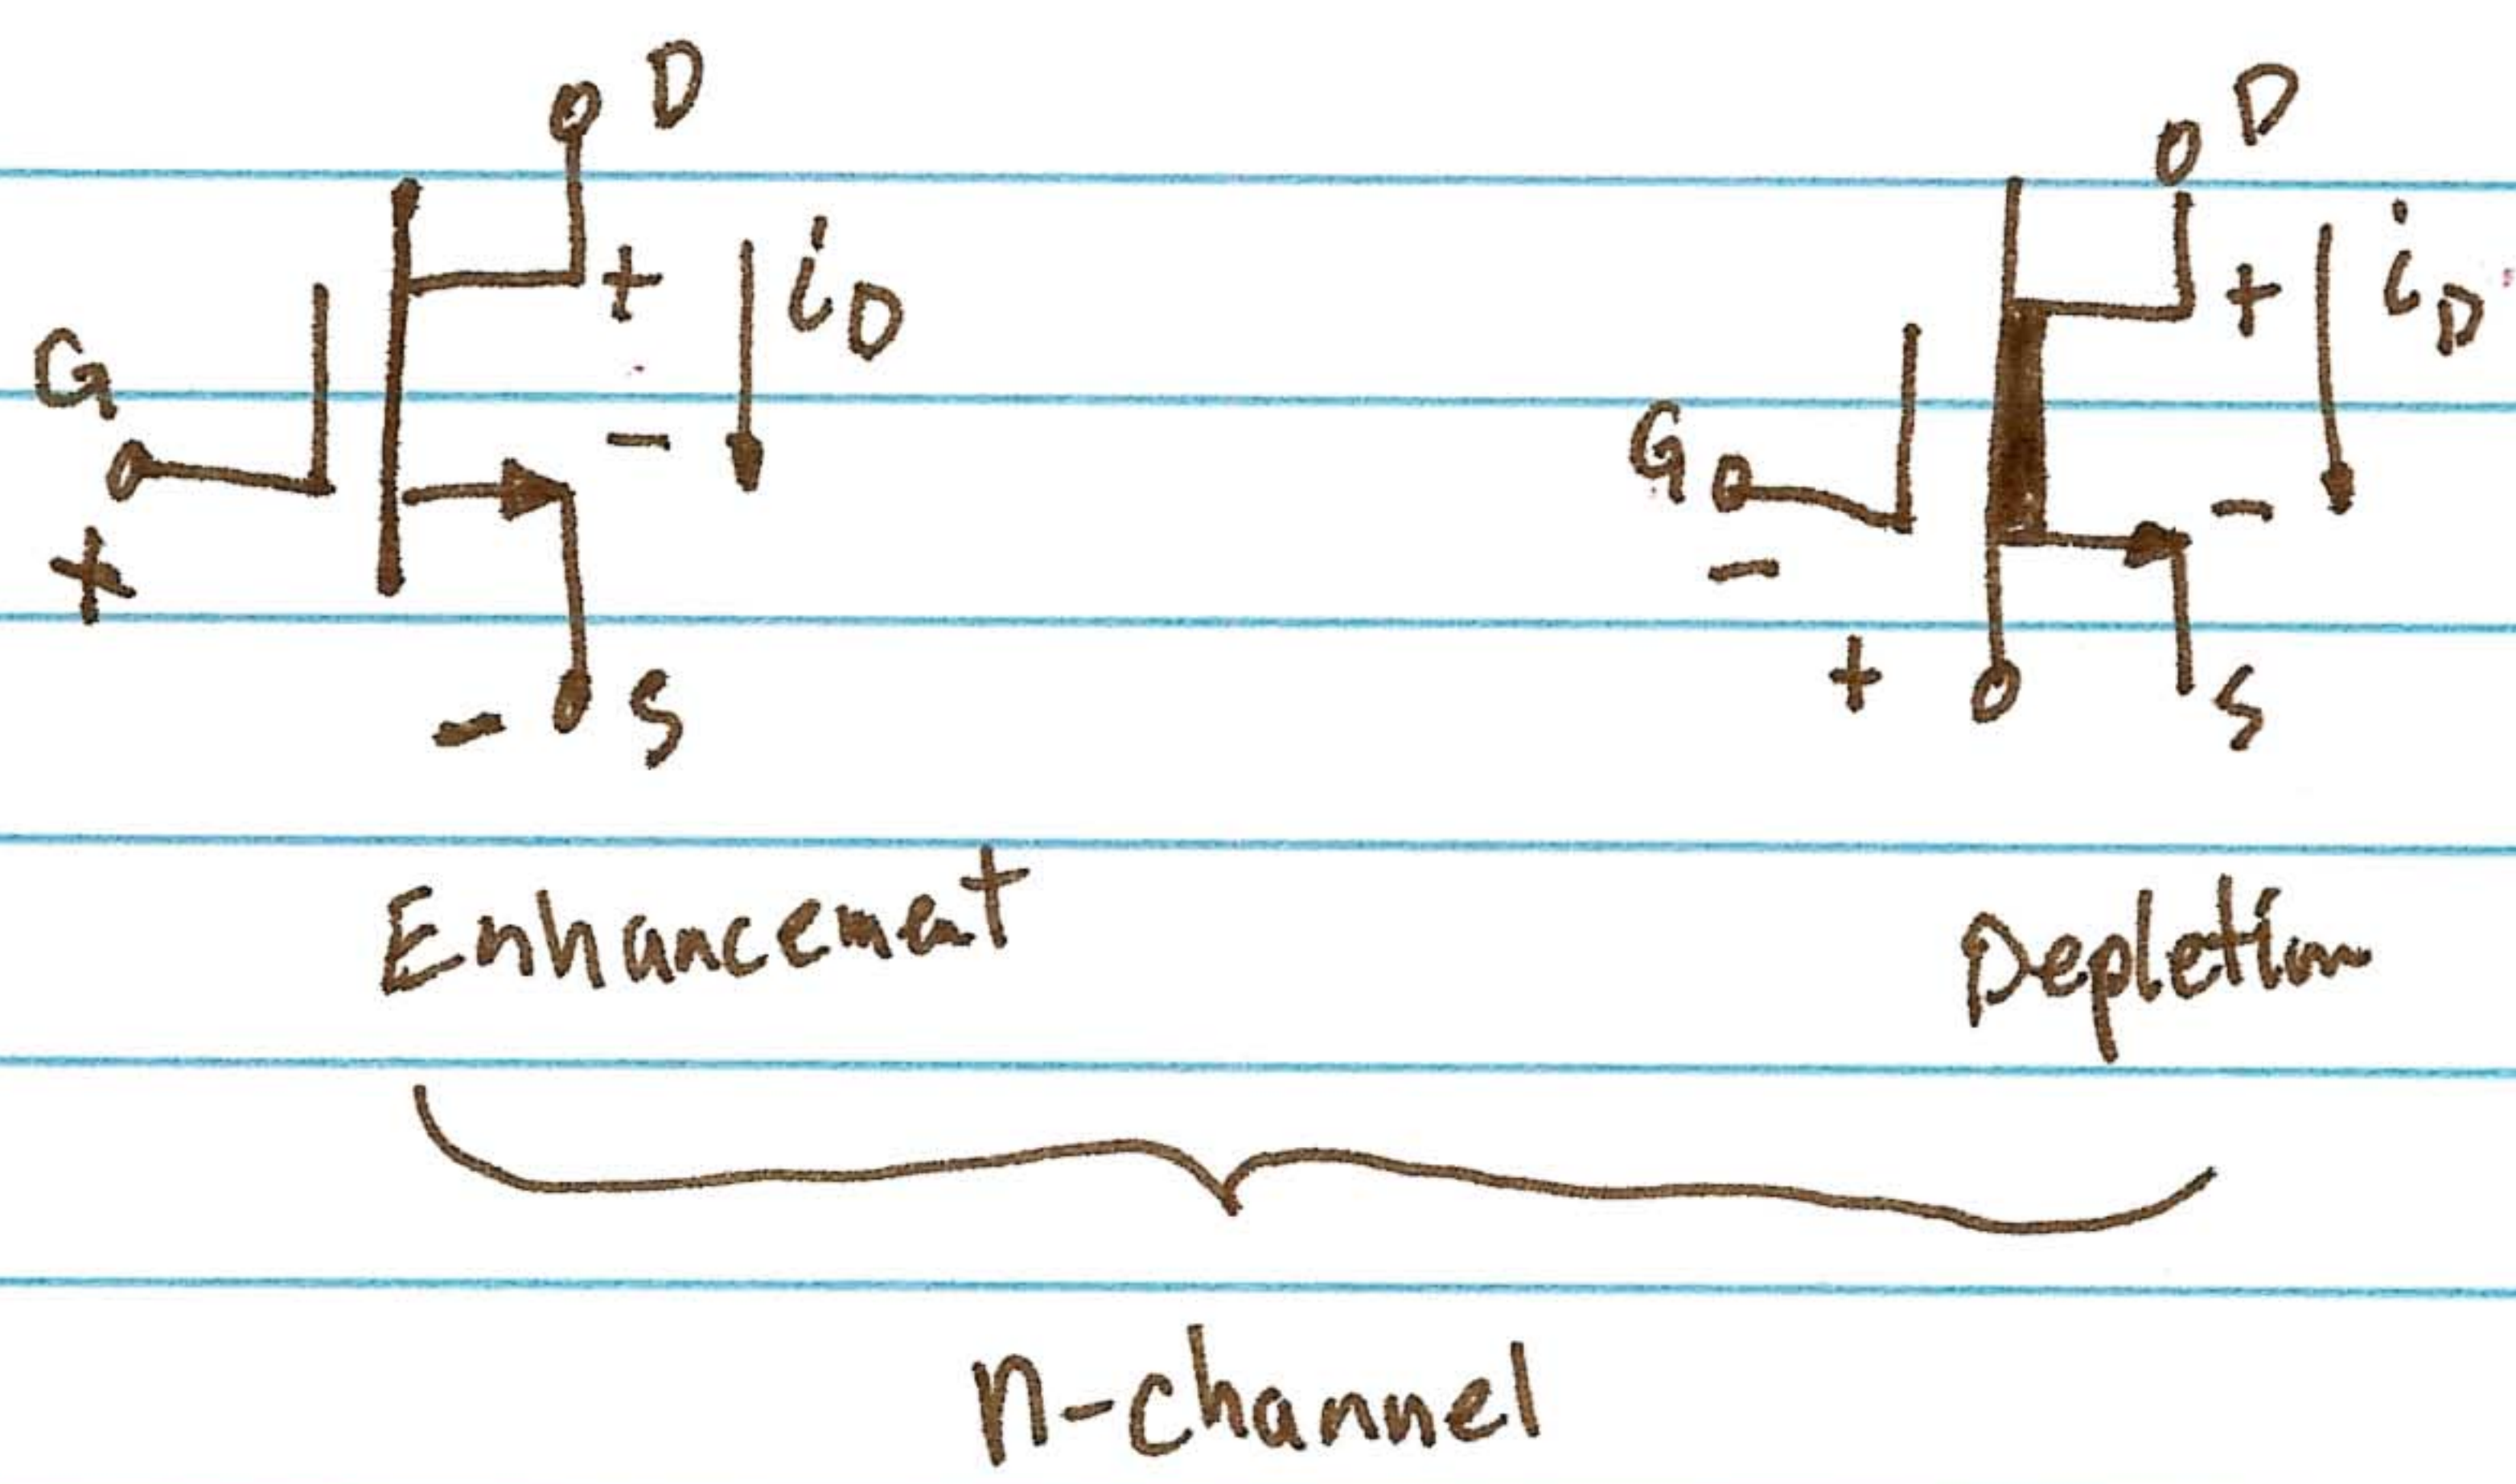 D D
+ i_D + i_D
G - G -
+ - + -
- S S
Enhancement Depletion
n-channel